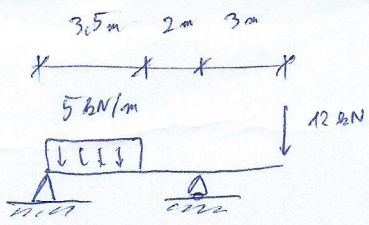 3,5m 2m 3m
5 kN/m
12 kN